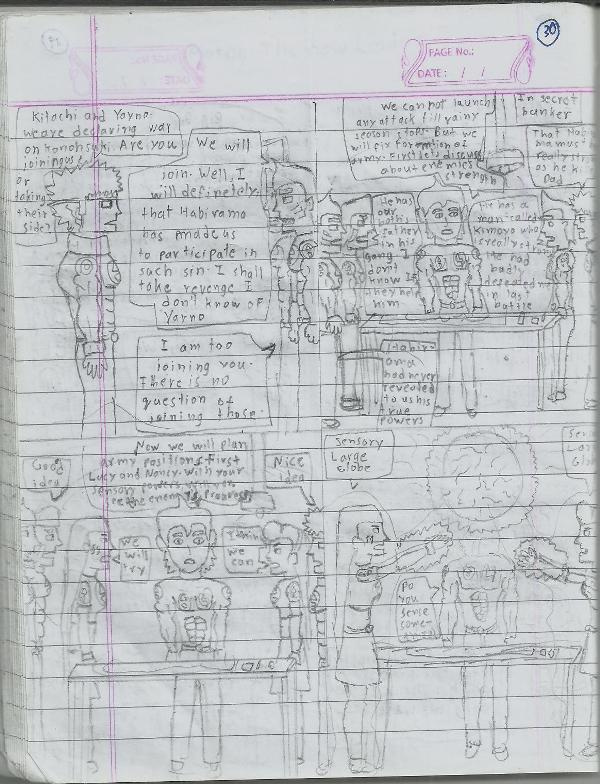 30
PAGE No.:
DATE: / /
Kitachi and Yarno
we are declaring war
on Konohsuki. Are you
joining us
or
taking
their
side?
We will
join. Well, I
will definetely
that Habiramo
has made us
to participate in
such sin. I shall
take revenge I
don't know of
Yarno
I am too
joining you.
There is no
question of
joining those
We can not launch
any attack till rainy
season stops. But we
will fix formation of
army. First let discuss
about enemies
strength
In secret
bunker
That Habi
rama mus
really
as he k
Dad
He has
our
father
in his
gang I
don't
know If
they help
him
He has a
man called
Kimoyo who
is really
He had
badly
defeated
in last
battle
Habir
ama
had never
revealed
to us his
true
powers
Now we will plan
army positions. First
Lucy and Nancy with your
sensory powers
see the enemies progress
Good
idea
Nice
idea
We
will
try
we
can
Sensory
Large
Globe
Sen
Lar
Glo
Do
you
sense
some-